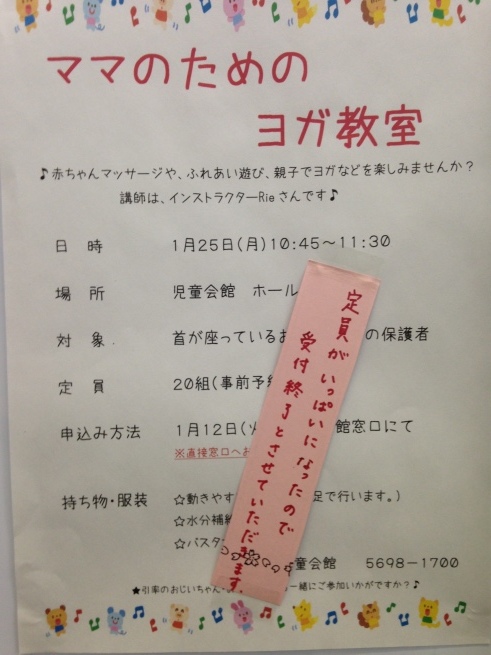 ママのための
ヨガ教室
♪赤ちゃんマッサージや、ふれあい遊び、親子でヨガなどを楽しみませんか？
講師は、インストラクターRieさんです♪
日 時 1月25日(月)10:45～11:30
場 所 児童会館 ホール
対 象 首が座っているお の保護者
定 員 20組(事前予
申込み方法 1月12日(火 館窓口にて
※直接窓口へお
持ち物・服装 ☆動きやす 足で行います。)
☆水分補
☆バスタ
童会館 5698-1700
★引率のおじいちゃん・ 一緒にご参加いかがですか？♪
定員がいっぱいになったので
受付終了とさせていただきます。